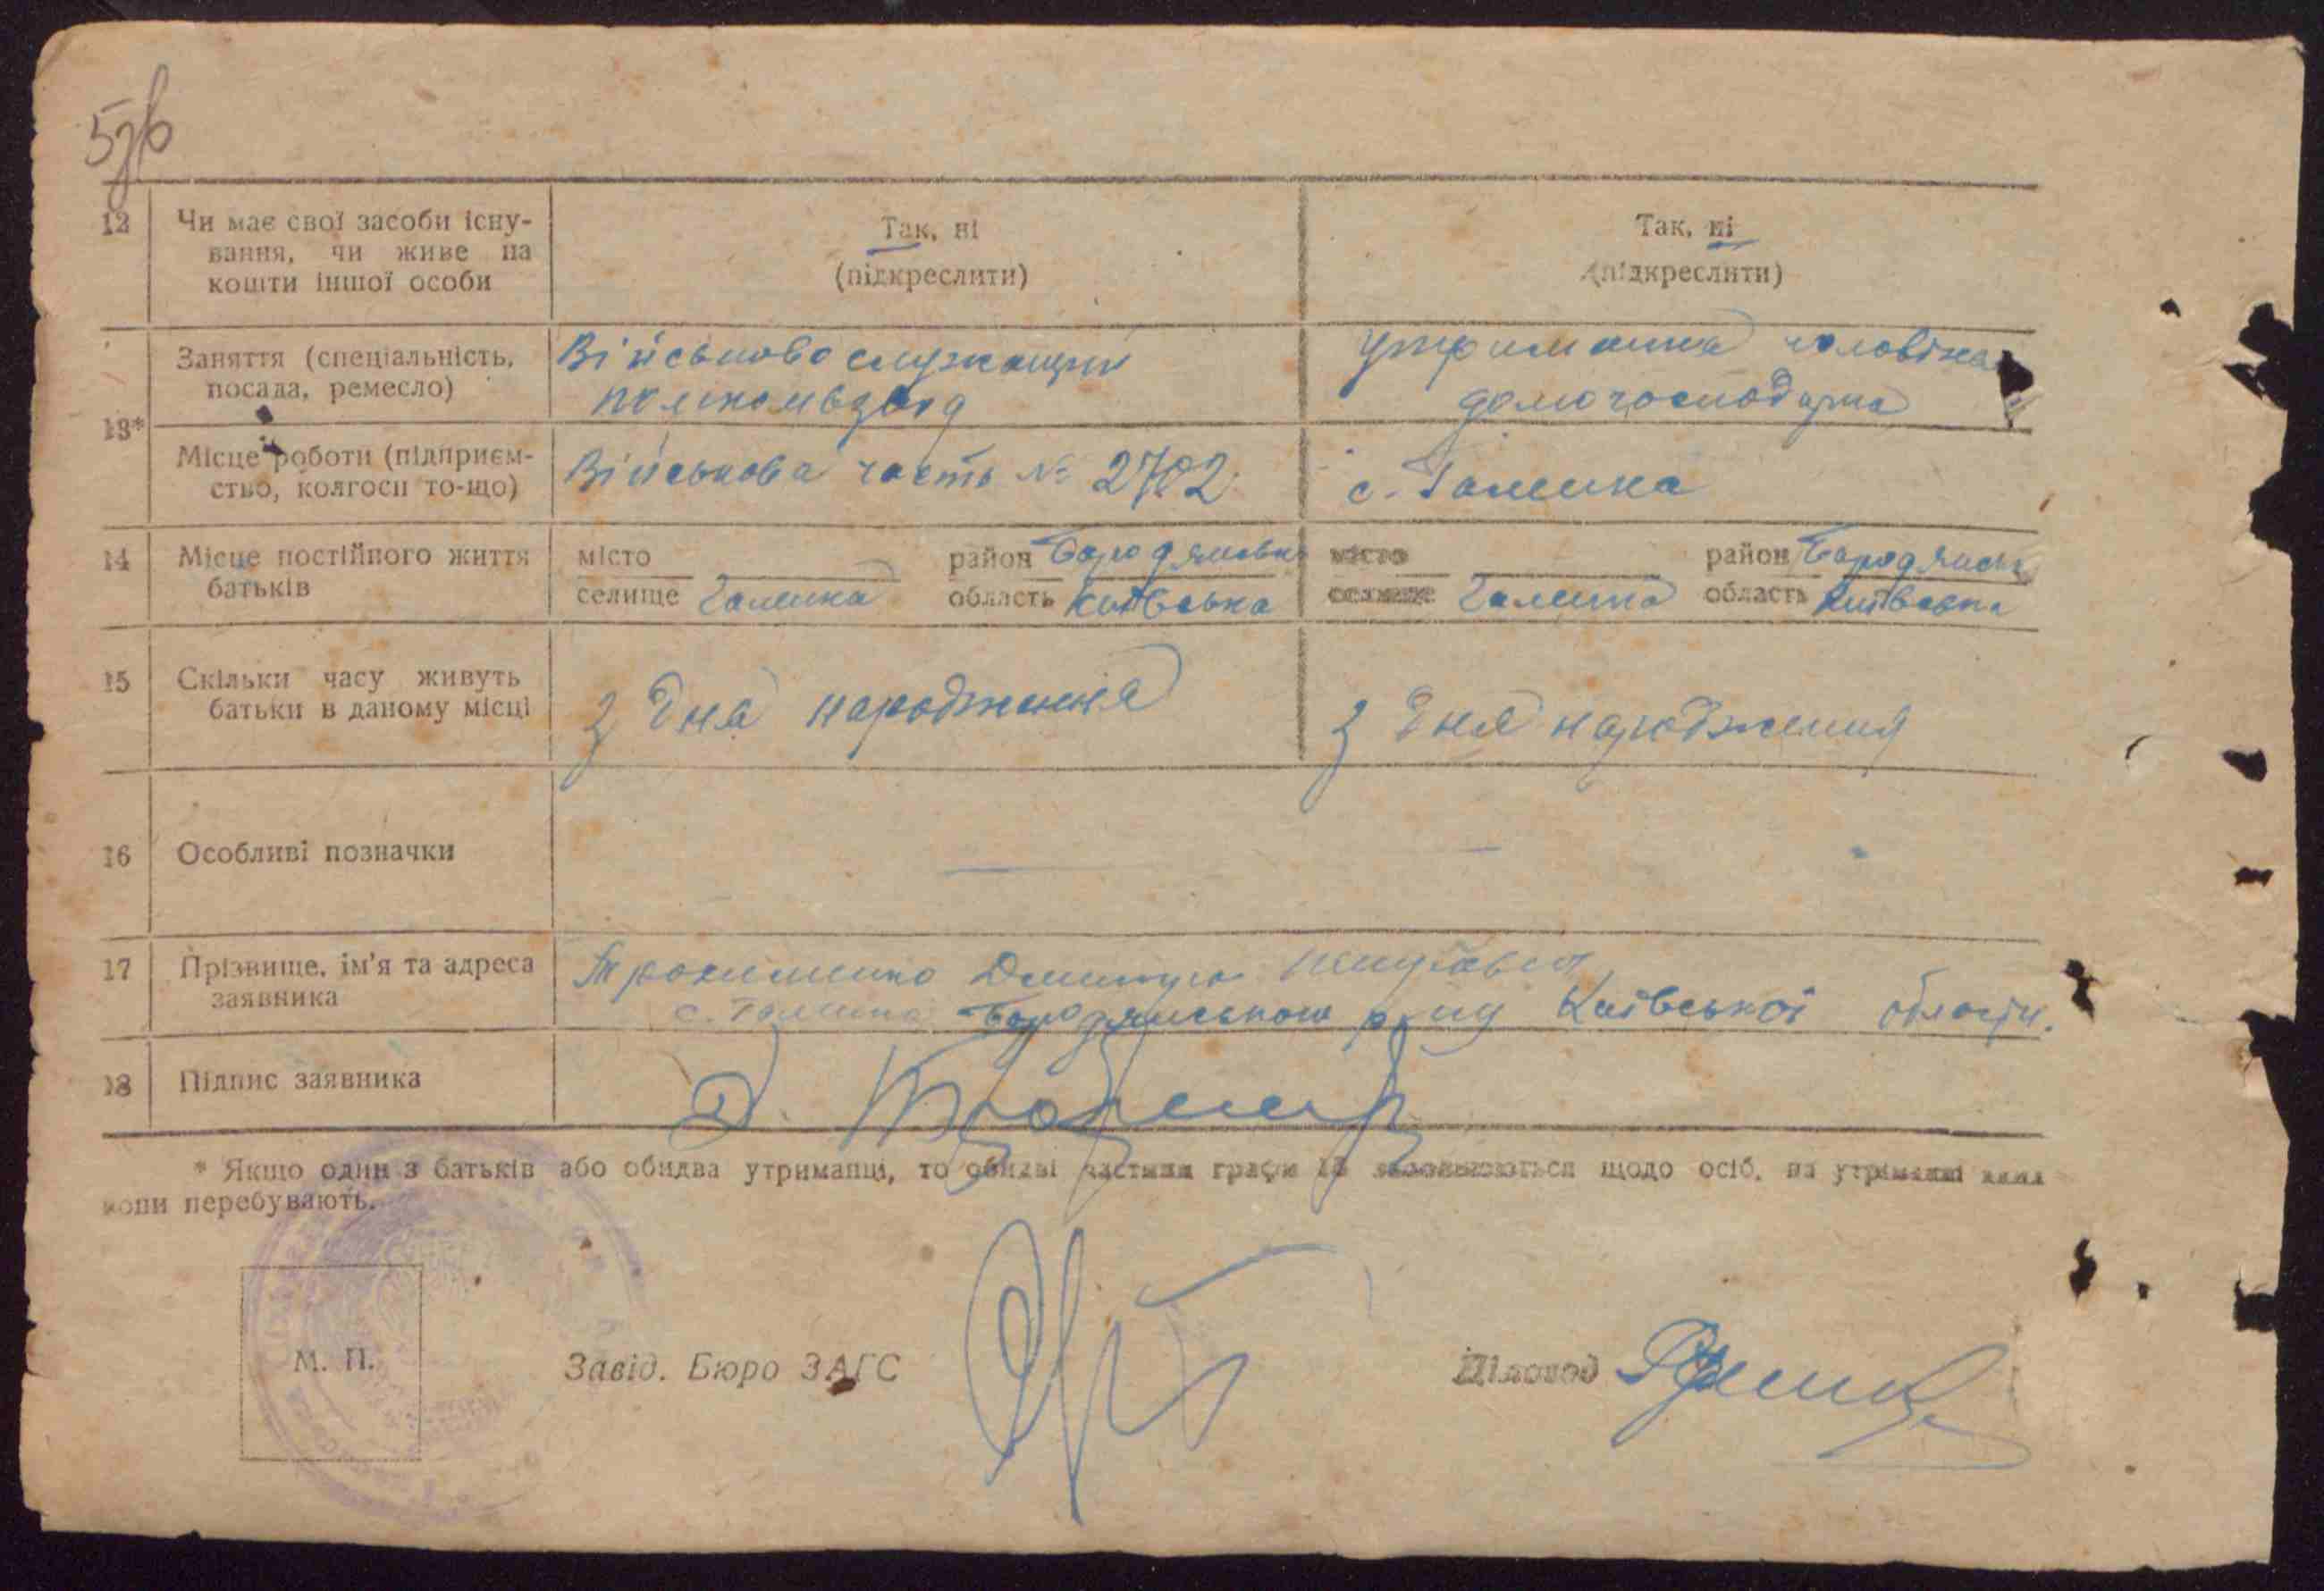 12 Чи має свої засоби існу- Так, ні Так, ні
вання, чи живе на (підкреслити) (підкреслити)
кошти іншої особи
Заняття (спеціальність, Військовослужащий утриманка чоловіка
посада, ремесло) домогосподарка
13*
Місце роботи (підприєм- Військова часть № 2702 с. Галинка
ство, колгосп то-що)
14 Місце постійного життя місто район Бородянськ місто район Бородянськ
батьків селище Галинка область Київська селище Галинка область Київська
15 Скільки часу живуть
батьки в даному місці з дня народження з дня народження
16 Особливі позначки
17 Прізвище, ім'я та адреса Дмитро
заявника с. Галинка Бородянського р-ну Київської області.
18 Підпис заявника
* Якщо один з батьків або обидва утриманці, то обидві частини графи 13 заповнюються щодо осіб, на утриманні яких
вони перебувають.
М. П. Завід. Бюро ЗАГС Діловод